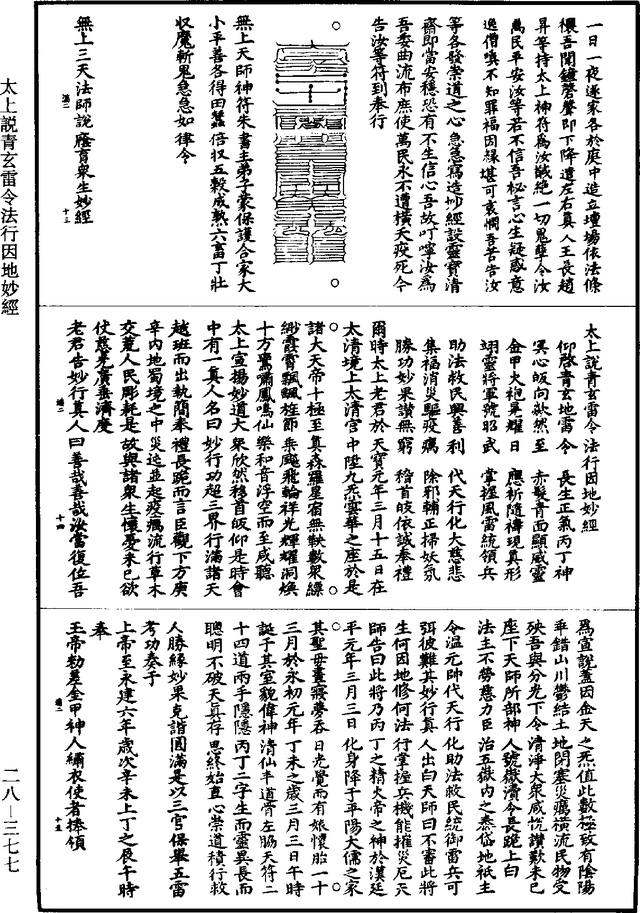 太上說青玄雷令法行因地妙經
二八—三七七
一日一夜逐家各於庭中造立壇場依法條
禳吾聞鐘磬聲即下降遣左右真人王長趙
昇等持太上神符為汝誡絶一切鬼孽令汝
萬民平安汝等若不信吾秘言心生疑惑意
逸僧嗔不知罪福因緣堪可哀憫吾苦告汝
等各發崇道之心急急寫造妙經設靈寶清
齋即當安穩恐有不生信心吾故叮嚀汝為
吾委曲流布庶使萬民永不遭橫夭疫死今
告汝等符到奉行
無上天師神符朱書主弟子蒙保護合家大
小平善各得田蠶倍收五穀成熟六畜丁壯
收魔斬鬼急急如律令
無上三天法師說廕育眾生妙經
太上說青玄雷令法行因地妙經
仰啓青玄地雷令 長生正氣丙丁神
冥心皈向歘然至 赤髮青面顯威靈
金甲火袍晃耀日 應祈隨禱現真形
翊靈將軍號昭武 掌握風雷統領兵
助法救民興善利 代天行化大慈悲
集福消災驅疫癘 除邪輔正掃妖氛
勝功妙果讚無窮 稽首皈依誠奉禮
爾時太上老君於天寶元年三月十五日在
太清境上太清宮中陞九炁雲華之座於是
諸大天帝十極至真森羅星宿無鞅數眾縹
緲霞霄飄颻旌節乘飈飛輪祥光輝耀洞煥
十方鸞嘯鳳鳴仙樂和音浮空而至咸聽
太上宣揚妙道大眾欣然稽首皈仰是時會
中有一真人名曰妙行功超三界行滿諸天
越班而出執簡奉禮長跪而言臣觀下方庚
辛內地蜀境之中災迍並起疫癘流行草木
交荒人民彫耗是故與諸眾生懷憂未已欲
仗慈尊廣垂濟度
老君告妙行真人曰善哉善哉汝當復位吾
為宣說蓋因金天之炁值此數極致有陰陽
乖錯山川鬱結土地閉塞災癘橫流民物受
殃吾與分光下令清淨大眾咸悅讚歎未已
座下天師所部神人號嶽瀆令長跪上曰
法主不勞慈力臣治五嶽內之泰岱地祇主
令溫元帥代天行化助法救民統御雷兵可
弭彼難其妙行真人出白天師曰不審此將
生何因地修何法行掌握兵機能摧災厄天
師告曰此將乃丙丁之精火帝之神於漢延
平元年三月三日化身降于平陽大儒之家
其聖母晝寢夢吞日光覺而有娠懷胎一十
三月於永初元年丁未之歲三月三日午時
誕于其室貌偉神清仙丰道骨左脇天符二
十四道兩手隱隱丙丁二字生而靈異長而
聰明不破天真存思終始直心崇道積行救
人勝緣妙果克諧圓滿是以三官保舉五雷
考功奏于
上帝至永建六年歲次辛未上丁之辰午時
奉
玉帝勑差金甲神人繡衣使者捧領